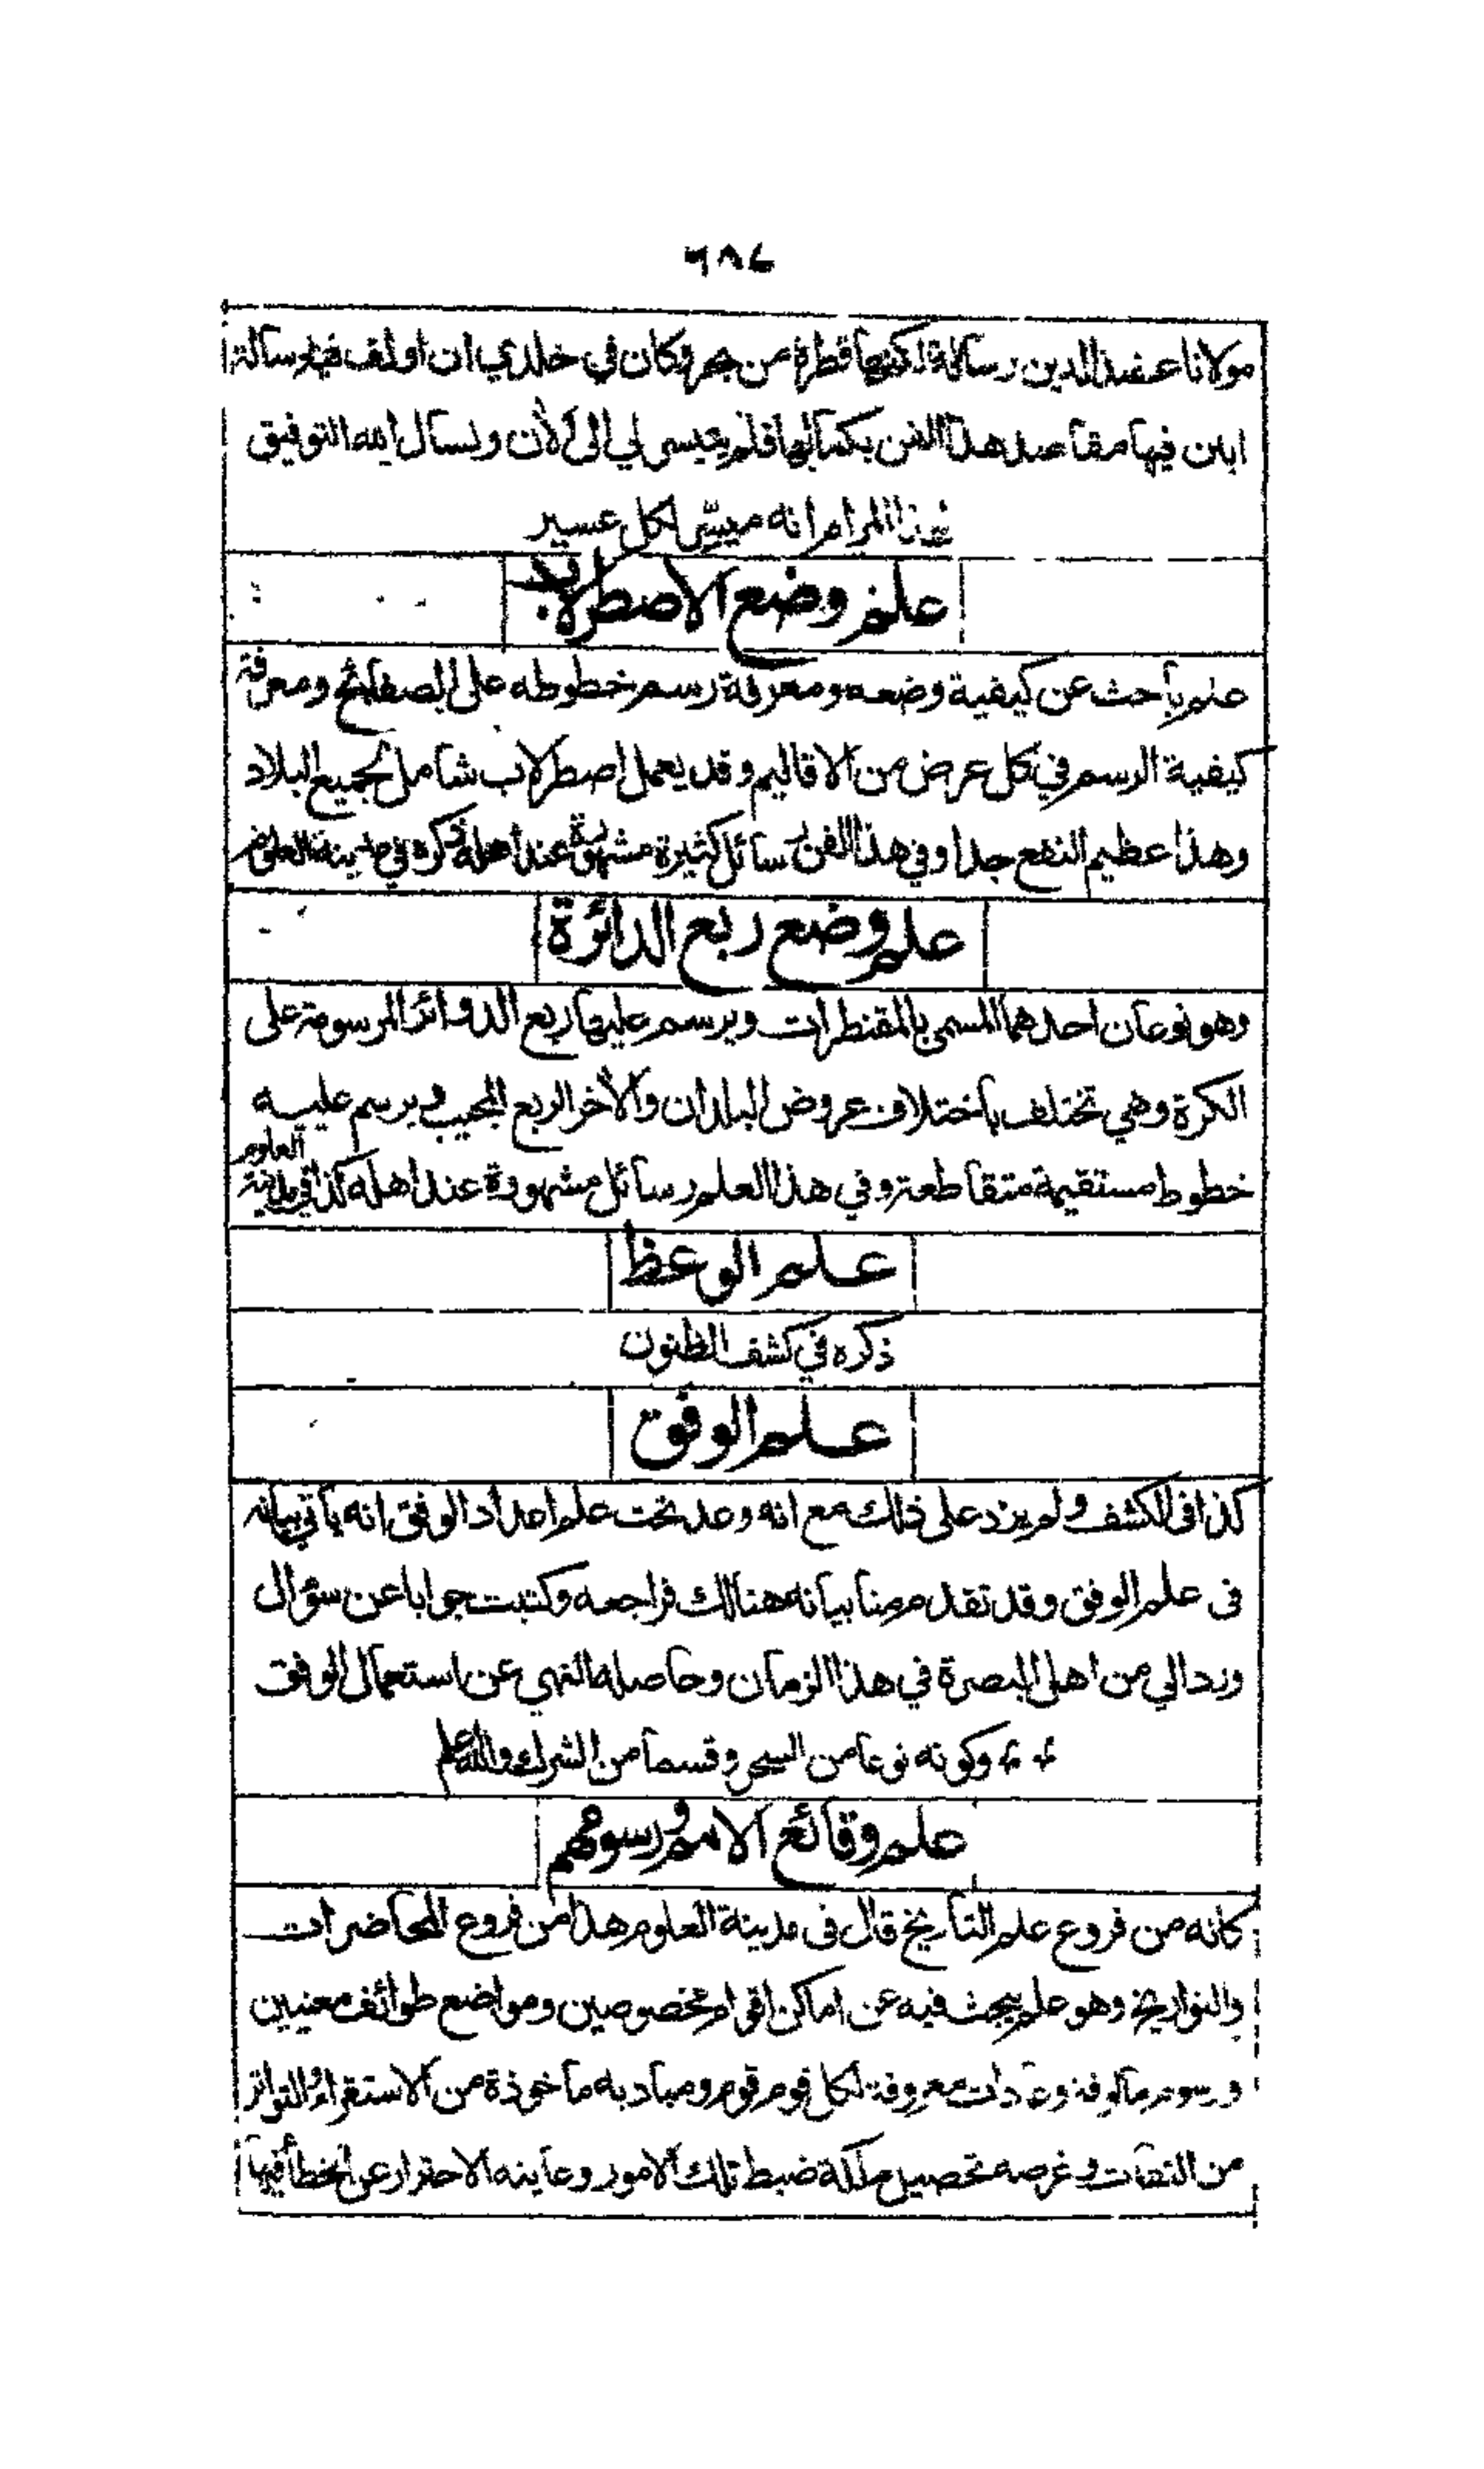 ٦٨٤
مولانا عضد الدين رسالة لكنها قطرة من بحر وكان في خلدي ان اولف فيه رسالة
ابين فيها مقاصد هذا الفن بكمالها فلم يتيسر لي الى الآن ونسأل الله التوفيق
المرام انه ميسّر لكل عسير
علم وضع الاصطرلاب
علم باحث عن كيفية وضعه ومعرفة رسم خطوطه على الصفائح ومعرفة
كيفية الرسم في كل عرض من الاقاليم وقد يعمل اصطرلاب شامل لجميع البلاد
وهذا عظيم النفع جدا وفي هذا الفن رسائل كثيرة مشهورة عند اهله ذكره في مدينة العلوم
علم وضع ربع الدائرة
وهو نوعان احدهما المسمى بالمقنطرات ويرسم عليها ربع الدوائر المرسومة على
الكرة وهي تختلف باختلاف عروض البلدان والآخر الربع المجيب ويرسم عليه
خطوط مستقيمة متقاطعة وفي هذا العلم رسائل مشهورة عند اهله كذا في مدينة العلوم
علم الوعظ
ذكره في كشف الظنون
علم الوفق
كذا في الكشف ولم يزد على ذلك مع انه وعد تحت علم اعداد الوفق انه يأتي بيانه
في علم الوفق وقد تقدم منا بيانه هنالك فراجعه وكتبت جوابا عن سؤال
ورد الي من اهل البصرة في هذا الزمان وحاصله النهي عن استعمال الوفق
وكونه نوعا من السحر وقسما من الشرك والله اعلم
علم وقائع الامم ورسومهم
كانه من فروع علم التأريخ قال في مدينة العلوم هذا من فروع المحاضرات
والتواريخ وهو علم يبحث فيه عن اماكن اقوام مخصوصين ومواضع طوائف معينين
ورسوم مألوفة وعادات معروفة لكل قوم قوم ومباديه مأخوذة من الاستقراء والتواتر
من الثقات وغرضه تحصيل ملكة ضبط تلك الامور وغايته الاحتراز عن الخطأ فيها